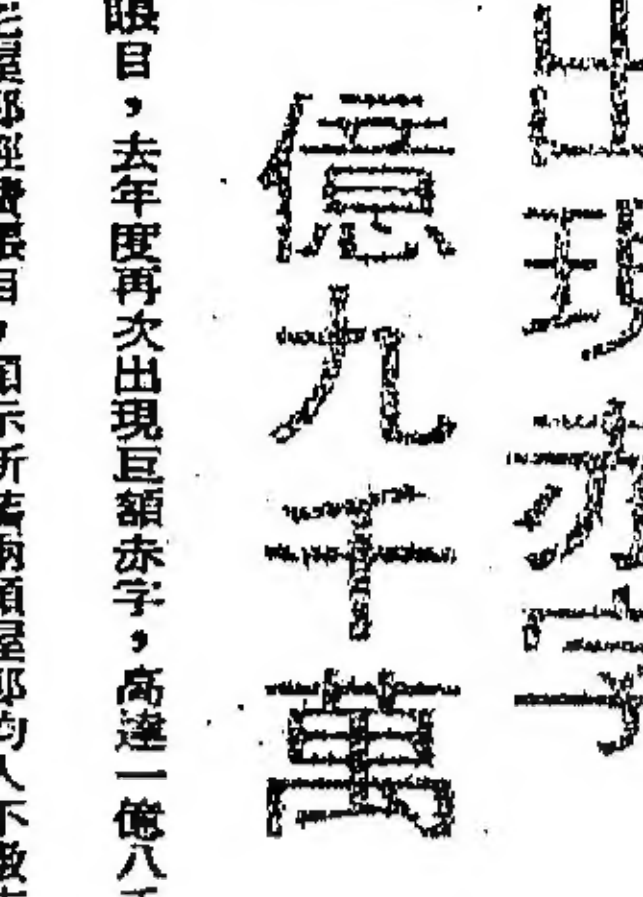 出現赤字
億九千萬
眼目，去年度再次出現巨額赤字，高達一億八千
屋邨經費賬目，顯示所舊兩類屋邨均入不敷